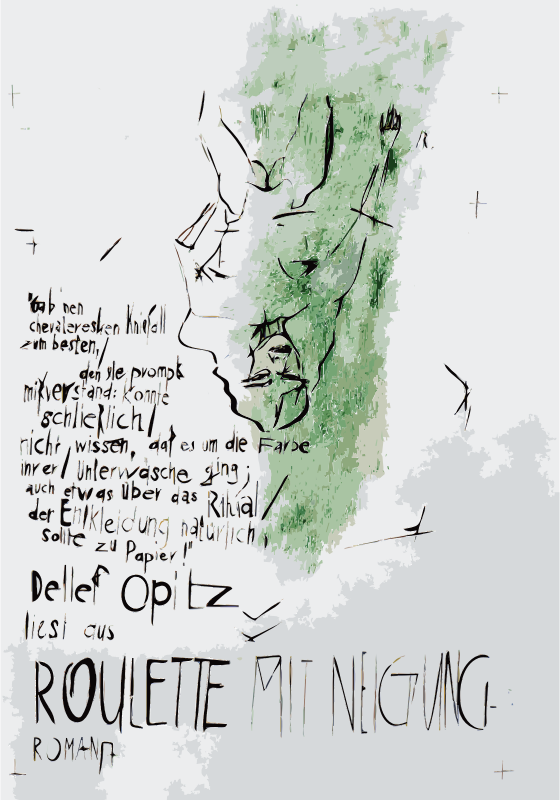 'gab 'nen
chevaleresken Kniefall
zum besten,/
den sie prompt
mißverstand: konnte
schließlich/
nicht wissen, daß es um die Farbe
ihrer/ Unterwäsche ging;
auch etwas über das Ritual/
der Entkleidung natürlich
sollte zu Papier!"
Detlef Opitz
liest aus
ROULETTE MIT NEIGUNG
ROMAN